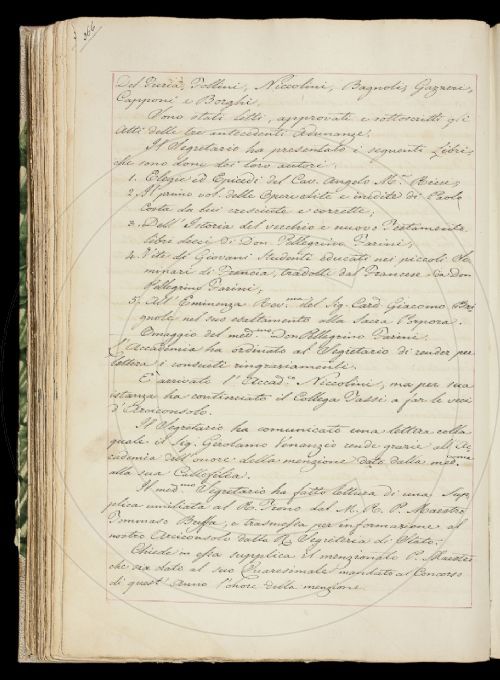 366
Del Furia, Follini, Niccolini, Bagnoli, Gazzeri,
Capponi e Borghi.
Sono stati letti, approvati e sottoscritti gli
Atti delle tre antecedenti Adunanze.
Il Segretario ha presentato i seguenti Libri,
che sono dono dei loro autori.
1. Elegie ed Epicedi del Cav. Angelo M.ª
2. Il primo vol. delle Opere edite e inedite di Paolo
Costa da lui cresciute e corrette;
3. Dell'Istoria del vecchio e nuovo Testamento
libri dieci di Don Pellegrino Farini;
4. Vite di Giovani Studenti educati nei piccoli Se-
minari di Francia, tradotte dal Francese da Don
Pellegrino Farini;
5. All'Eminenza Rev.ma del Sig. Card. Giacomo Bri-
gnole nel suo esaltamento alla Sacra Porpora.
Omaggio del med.mo Don Pellegrino Farini.
L'Accademia ha ordinato al Segretario di render per
lettera i consueti ringraziamenti.
È arrivato l'Accad.o Niccolini, ma per sua
istanza ha continuato il Collega Tassi a far le veci
d'Arciconsolo.
Il Segretario ha comunicato una lettera colla
quale il Sig. Girolamo Venanzio rende grazie all'Ac-
cademia dell'onore della menzione dato dalla med.esima
alla sua Callofilia.
Il med.mo Segretario ha fatto lettura di una Sup-
plica umiliata al R. Trono del M. R. P. Maestro
Tommaso Buffa, e trasmessa per informazione al
nostro Arciconsolo dalla R. Segreteria di Stato;
Chiede in essa supplica il menzionato P. Maestro
che sia dato al suo Quaresimale mandato al Concorso
di quest'Anno l'onore della menzione.